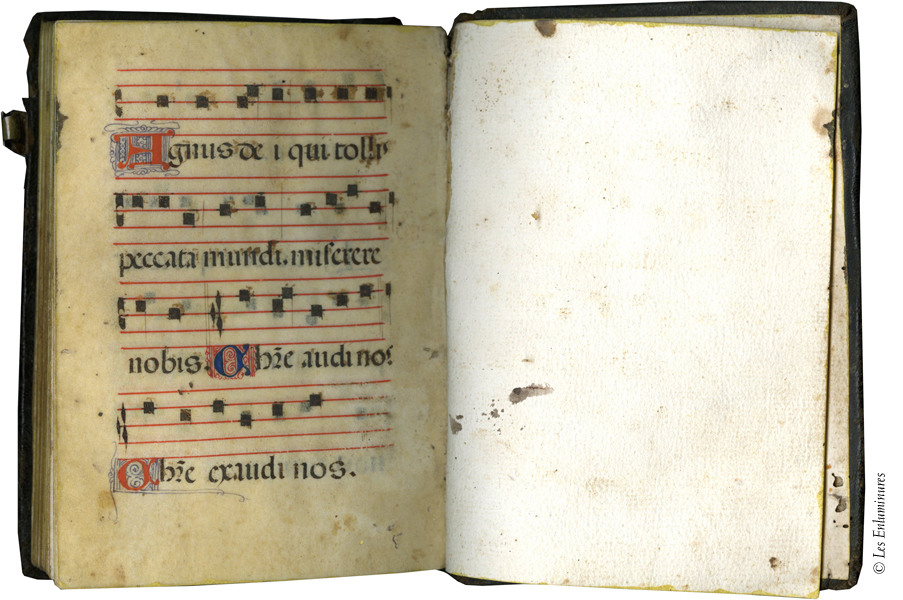 Agnus de i qui tollis
peccata mundi. miserere
nobis. Chr̄e audi nos.
Chr̄e exaudi nos.
© Les Enluminures